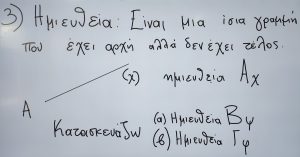 3) Ημιευθεία: Είναι μια ίσια γραμμή
που έχει αρχή αλλά δεν έχει τέλος.
(χ) ημιευθεία Αχ
Α
Κατασκευάζω (α) Ημιευθεία Βψ
(β) Ημιευθεία Γφ